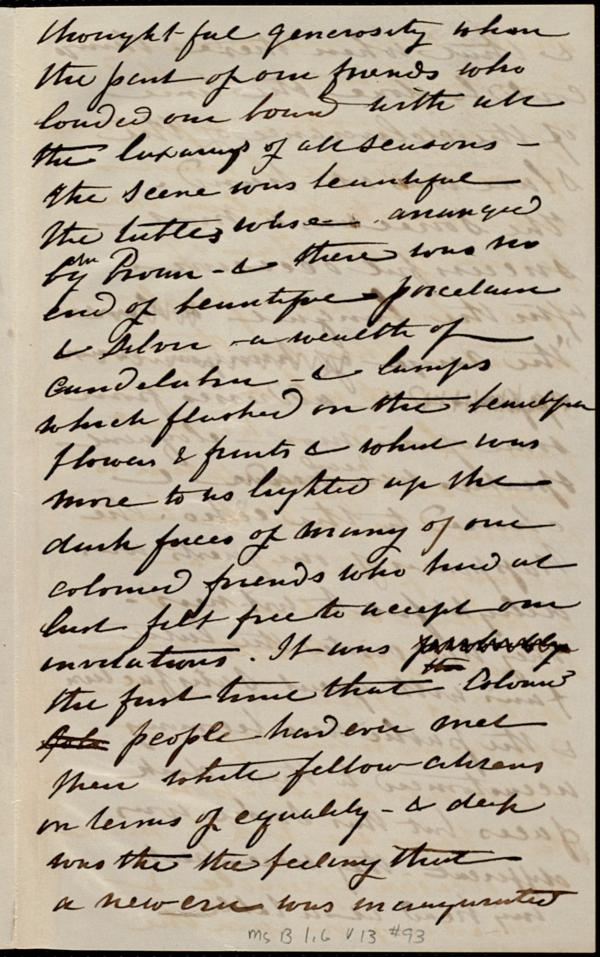 thoughtful generosity when
the part of our friends who
loaded our board with all
the luxuries of all seasons -
the scene was beautiful
the tables whose arranged
by Prom - & there was no
end of beautiful porcelain
& silver - a wealth of
candelabra - & lamps
which flashed on the beautiful
flowers & fruits & what was
more to us lighted up the
dark faces of many of our
colored friends who had at
last felt free to accept our
invitations. It was probably
the first time that Colored
people had ever met
their white fellow-citizens
on terms of equality - & deep
was the the feeling that
a new era was inaugurated
Ms B 1.6 V 13 #93